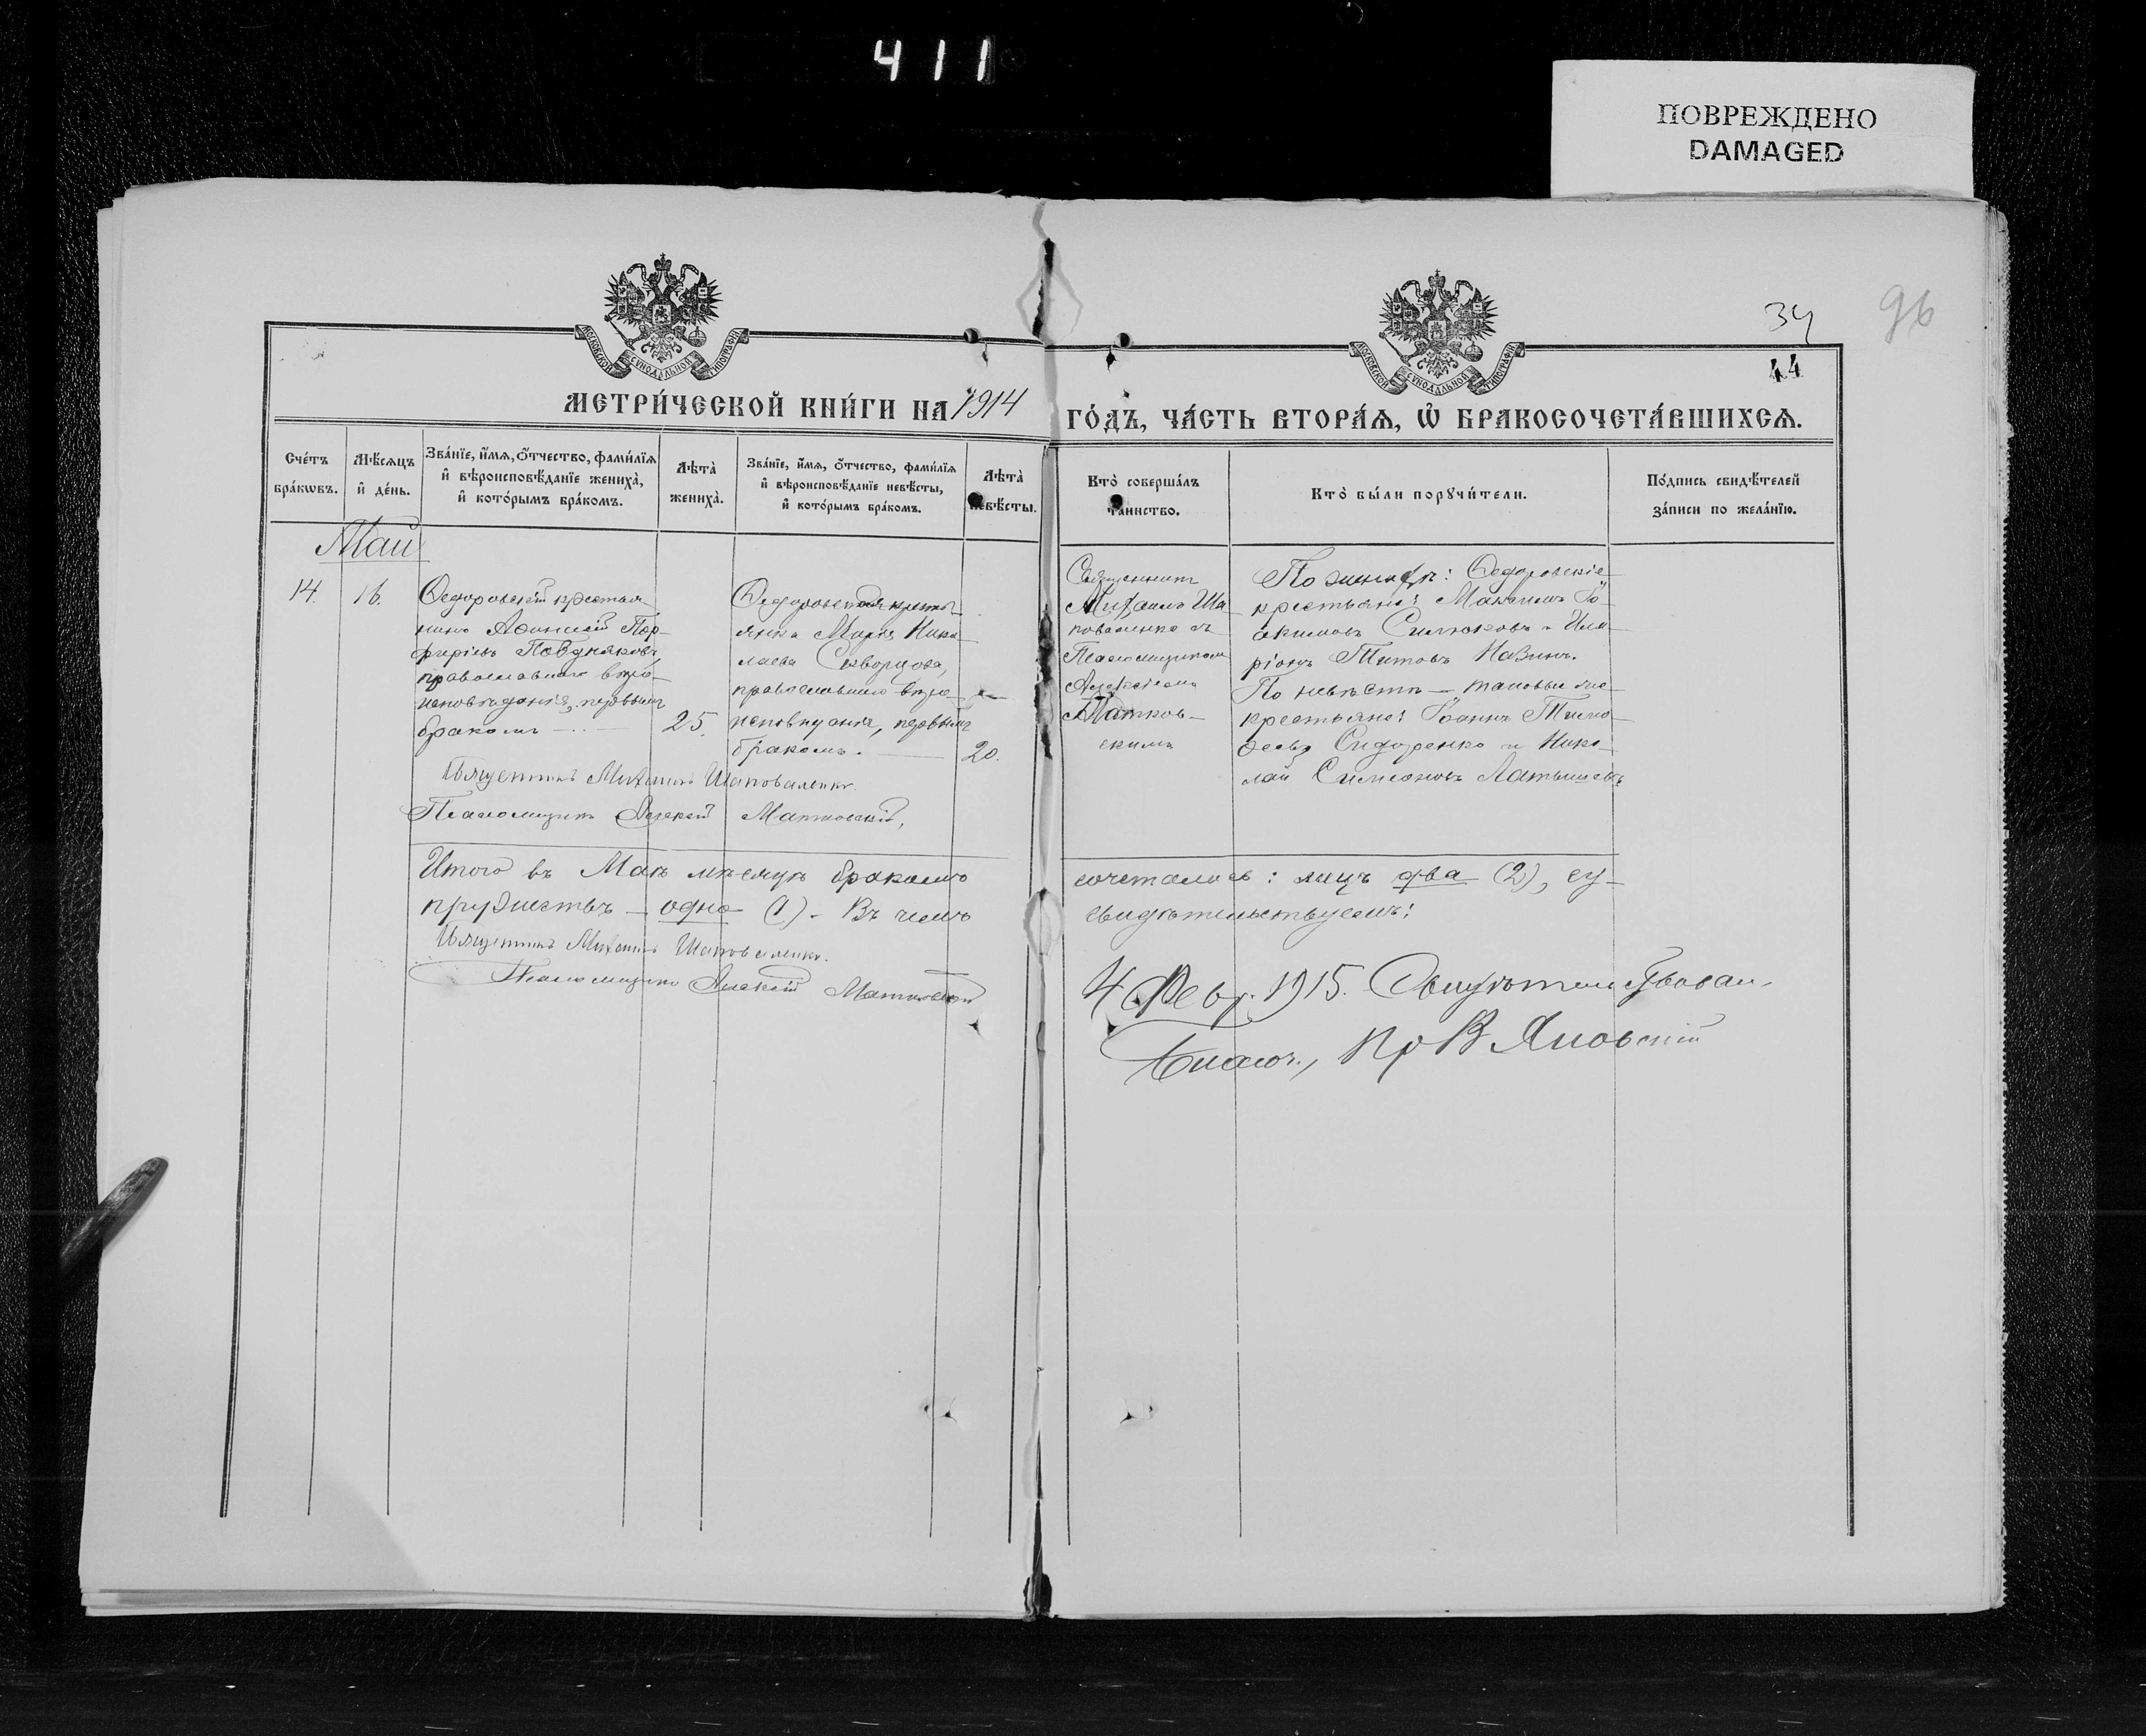 411
ПОВРЕЖДЕНО
DAMAGED
96
34
44
МОСКОВСКОЙ СѴНОДАЛЬНОЙ ТИПОГРАФІИ
МОСКОВСКОЙ СѴНОДАЛЬНОЙ ТИПОГРАФІИ
МЕТРИ́ЧЕСКОЙ КНИ́ГИ НА 1914 ГО́ДЪ, ЧА́СТЬ ВТОРА́Ѧ, Ѿ БРАКОСОЧЕТА́ВШИХСѦ.
Сче́тъ
бра́кѡвъ.
Мѣ́сяцъ
и҆ де́нь.
Зва́нїе, и҆́мѧ, ѻ҆́тчество, фами́лїѧ
и҆ вѣроисповѣ́данїе жениха̀,
и҆ кото́рымъ бра́комъ.
Лѣта̀
жениха̀.
Зва́нїе, и҆́мѧ, ѻ҆́тчество, фами́лїѧ
и҆ вѣроисповѣ́данїе невѣ́сты,
и҆ кото́рымъ бра́комъ.
Лѣта̀
невѣ́сты.
Кто̀ соверша́лъ
та́инство.
Кто̀ бы́ли порꙋчи́тели.
По́дпись свидѣ́телей
за́писи по жела́нїю.
Май
14.
16.
Ѳедоровскій крестья-
нинъ Аѳанасій Пор-
фиріевъ Поздняковъ,
православнаго вѣро-
исповѣданія, первымъ
бракомъ
25.
Ѳедоровская кресть-
янка Марія Нико-
лаева Скворцова,
православнаго вѣро-
исповѣданія, первымъ
бракомъ.
20.
Священникъ
Михаилъ Ша-
поваленко съ
Псаломщикомъ
Алексѣемъ
Матков-
скимъ
По женихѣ: Ѳедоровскіе
крестьяне: Максимъ Іо-
акимовъ Силюковъ и Ила-
ріонъ Титовъ Назинъ.
По невѣстѣ — таковые же
крестьяне: Іоаннъ Тимо-
ѳеевъ Сидоренко и Нико-
лай Симеоновъ Латышевъ
Священникъ Михаилъ Шаповаленко.
Псаломщикъ Алексій Матковскій,
Итого въ Маѣ мѣсяцѣ бракомъ сочеталось: лицъ два (2), су-
пружествъ — одно (1) — Въ чемъ свидѣтельствуемъ:
Священникъ Михаилъ Шаповаленко.
Псаломщикъ Алексій Матковскій
4 Февр. 1915. Свидѣтельствовалъ